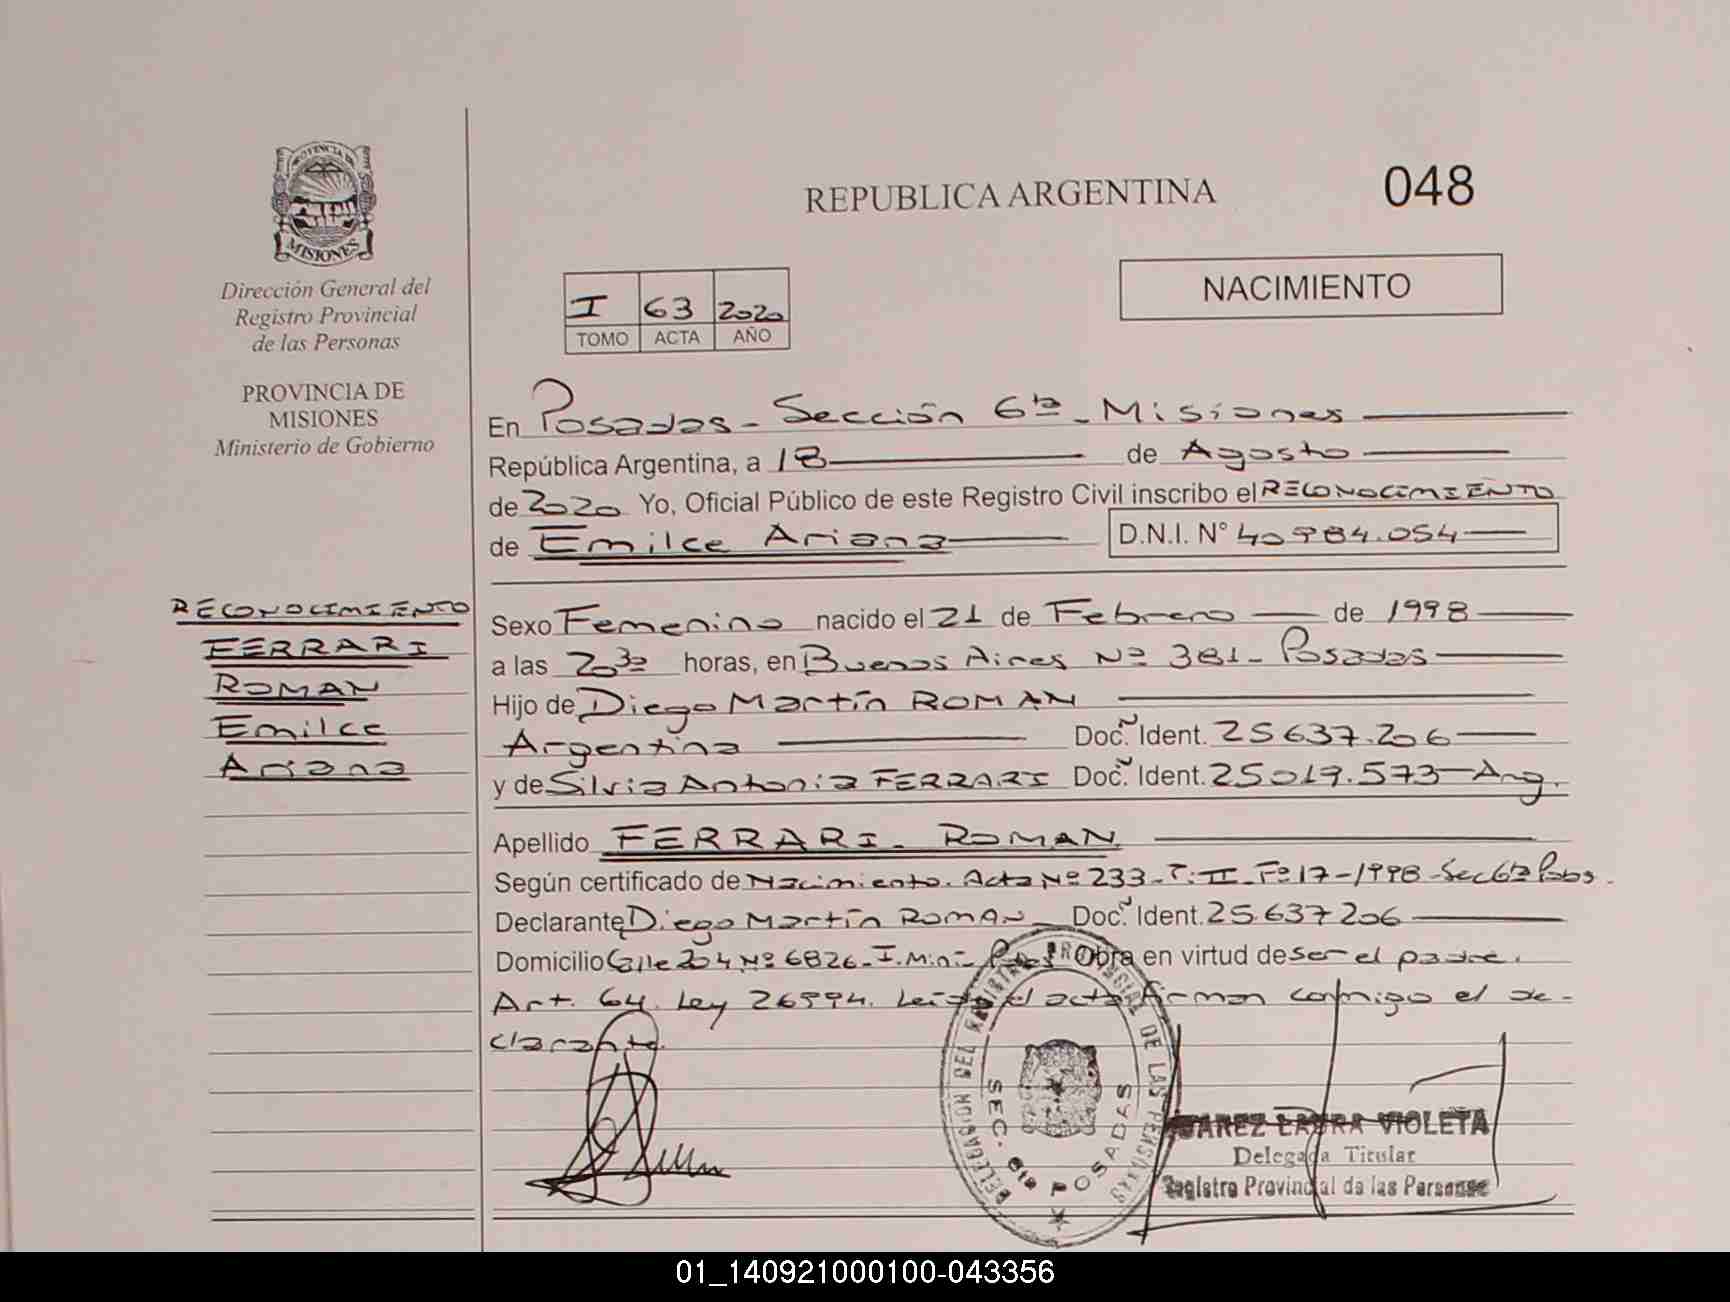 PROVINCIA DE
MISIONES
Dirección General del
Registro Provincial
de las Personas
PROVINCIA DE
MISIONES
Ministerio de Gobierno
RECONOCIMIENTO
FERRARI
ROMAN
Emilce
Ariana
REPUBLICA ARGENTINA
048
NACIMIENTO
I 63 2020
TOMO ACTA AÑO
En Posadas - Sección 6ta - Misiones
República Argentina, a 18 de Agosto
de 2020 Yo, Oficial Público de este Registro Civil inscribo el RECONOCIMIENTO
de Emilce Ariana D.N.I. N° 40984.054
Sexo Femenino nacido el 21 de Febrero de 1998
a las 20³⁰ horas, en Buenos Aires Nº 381 - Posadas
Hijo de Diego Martín ROMAN
Argentina Doc. Ident. 25637.206
y de Silvia Antonia FERRARI Doc. Ident. 25019.573 - Arg.
Apellido FERRARI - ROMAN
Según certificado de Nacimiento. Acta Nº 233 - T: II - Fº 17 - 1998 - Sec 6ta Pdas.
Declarante Diego Martín ROMAN Doc. Ident. 25.637206
Domicilio Calle 204 Nº 6826 - I. Miní - Pdas Obra en virtud de ser el padre.
Art. 64. Ley 26994. Leída el acta firman conmigo el de-
clarante.
DELEGACION DEL REGISTRO PROVINCIAL DE LAS PERSONAS
SEC. 6ta POSADAS
JUAREZ LAURA VIOLETA
Delegada Titular
Registro Provincial de las Personas
01_140921000100-043356